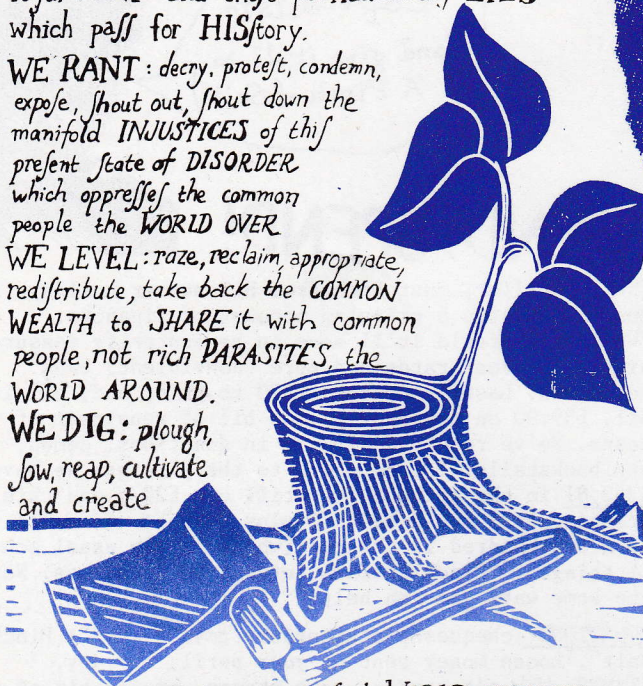 LIES
which paſſ for HISſtory.
WE RANT: decry, proteſt, condemn,
expoſe, ſhout out, ſhout down the
manifold INJUSTICES of thiſ
preſent ſtate of DISORDER
which oppreſſeſ the common
people the WORLD OVER
WE LEVEL: raze, reclaim, appropriate,
rediſtribute, take back the COMMON
WEALTH to SHARE it with common
people, not rich PARASITES, the
WORLD AROUND.
WE DIG: plough,
ſow, reap, cultivate
and create